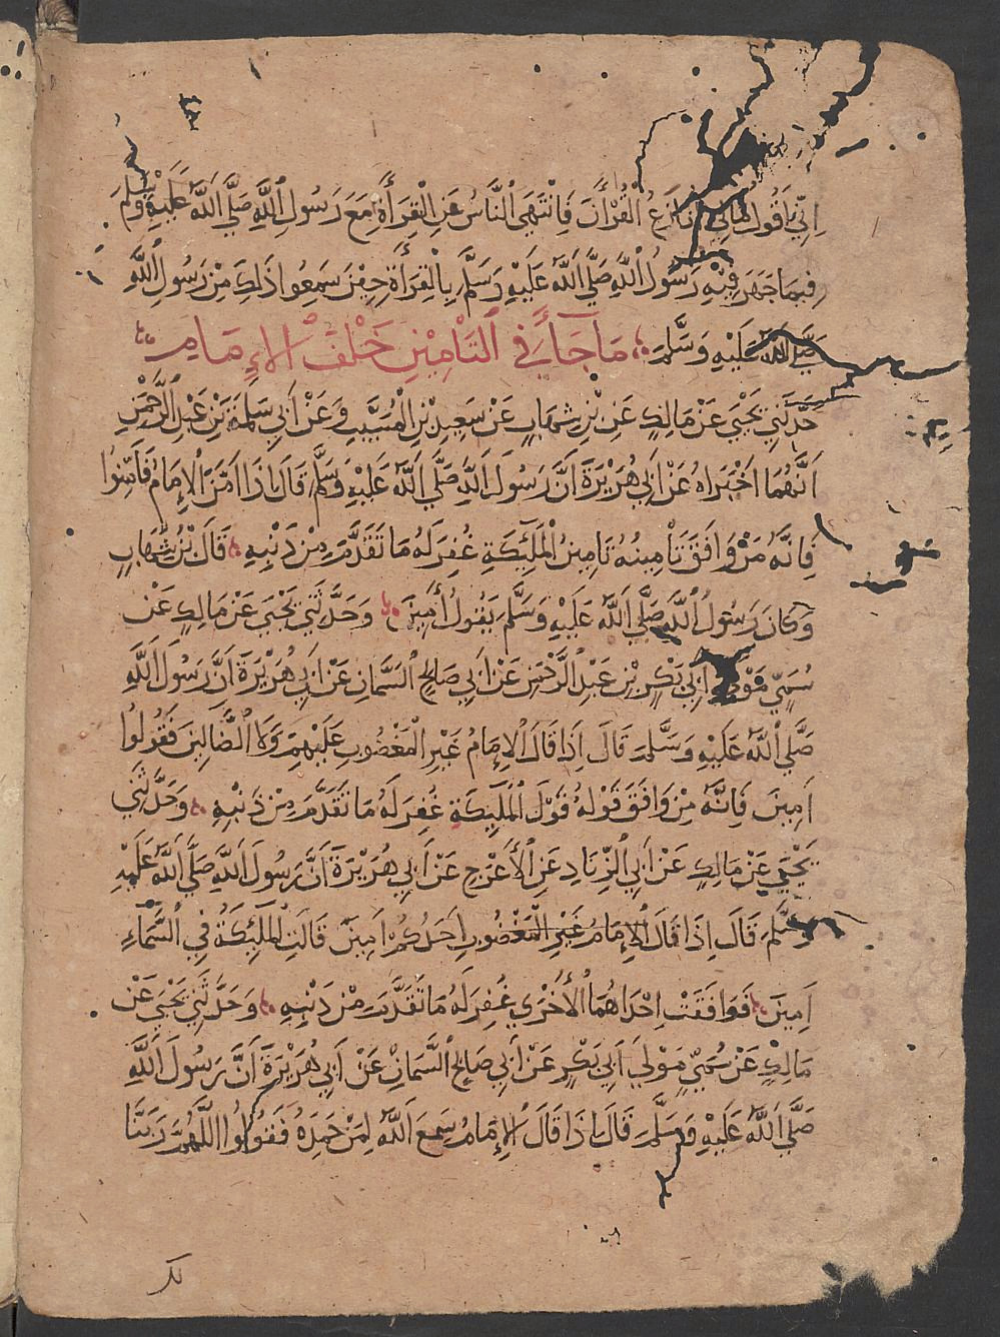 اِنِّي اَقُولُ مَالِي اُنَازَعُ الْقُرْاٰنَ فَانْتَهَى النَّاسُ عَنِ الْقِرَأَةِ مَعَ رَسُولِ اللَّهِ صَلَّى اللَّهُ عَلَيْهِ وَسَلَّمَ
فِيمَا جَهَرَ فِيْهِ رَسُولُ اللَّهِ صَلَّى اللَّهُ عَلَيْهِ وَسَلَّمَ بِالْقِرَأَةِ حِيْنَ سَمِعُوا ذَلِكَ مِنْ رَسُولِ اللَّهِ
صَلَّى اللَّهُ عَلَيْهِ وَسَلَّمَ مَا جَآءَ فِي التَّامِيْنِ خَلْفَ الْاِمَامِ
حَدَّثَنِي يَحْيَى عَنْ مَالِكٍ عَنِ بْنِ شِهَابٍ عَنْ سَعِيدِ بْنِ الْمُسَيَّبِ وَعَنْ اَبِي سَلَمَةَ بْنِ عَبْدِ الرَّحْمٰنِ
اَنَّهُمَا اَخْبَرَاهُ عَنْ اَبِي هُرَيْرَةَ اَنَّ رَسُولَ اللَّهِ صَلَّى اللَّهُ عَلَيْهِ وَسَلَّمَ قَالَ اِذَا اَمَّنَ الْاِمَامُ فَاَمِّنُوا
فَاِنَّهُ مَنْ وَافَقَ تَاْمِينُهُ تَامِينَ الْمَلٰٓئِكَةِ غُفِرَ لَهُ مَا تَقَدَّمَ مِنْ ذَنْبِهِ قَالَ بْنُ شِهَابٍ
وَكَانَ رَسُولُ اللَّهِ صَلَّى اللَّهُ عَلَيْهِ وَسَلَّمَ يَقُولُ أَمِينَ وَحَدَّثَنِي يَحْيَى عَنْ مَالِكٍ عَنْ
سُمَيٍّ مَوْلَى اَبِي بَكْرِ بْنِ عَبْدِ الرَّحْمٰنِ عَنْ اَبِي صَالِحِ السَّمَّانِ عَنْ اَبِي هُرَيْرَةَ اَنَّ رَسُولَ اللَّهِ
صَلَّى اللَّهُ عَلَيْهِ وَسَلَّمَ قَالَ اِذَا قَالَ الْاِمَامُ غَيْرِ الْمَغْضُوبِ عَلَيْهِمْ وَلَا الضَّالِّينَ فَقُولُوا
اَمِينَ فَاِنَّهُ مَنْ وَافَقَ قَوْلُهُ قَوْلَ الْمَلٰٓئِكَةِ غُفِرَ لَهُ مَا تَقَدَّمَ مِنْ ذَنْبِهِ وَحَدَّثَنِي
يَحْيَى عَنْ مَالِكٍ عَنْ اَبِي الزِّنَادِ عَنِ الْاَعْرَجِ عَنْ اَبِي هُرَيْرَةَ اَنَّ رَسُولَ اللَّهِ صَلَّى اللَّهُ عَلَيْهِ
وَسَلَّمَ قَالَ اِذَا قَالَ الْاِمَامُ غَيْرِ الْمَغْضُوبِ اَحَدُكُمْ اَمِينَ قَالَتِ الْمَلٰٓئِكَةُ فِي السَّمَآءِ
اَمِينَ فَوَافَقَتْ اِحْدَاهُمَا الْاُخْرٰي غُفِرَ لَهُ مَا تَقَدَّمَ مِنْ ذَنْبِهِ وَحَدَّثَنِي يَحْيَى عَنْ
مَالِكٍ عَنْ سُمَيٍّ مَوْلَى اَبِي بَكْرٍ عَنْ اَبِي صَالِحِ السَّمَّانِ عَنْ اَبِي هُرَيْرَةَ اَنَّ رَسُولَ اللَّهِ
صَلَّى اللَّهُ عَلَيْهِ وَسَلَّمَ قَالَ اِذَا قَالَ الْاِمَامُ سَمِعَ اللَّهُ لِمَنْ حَمِدَهُ فَقُولُوا اللَّهُمَّ رَبَّنَا
لك